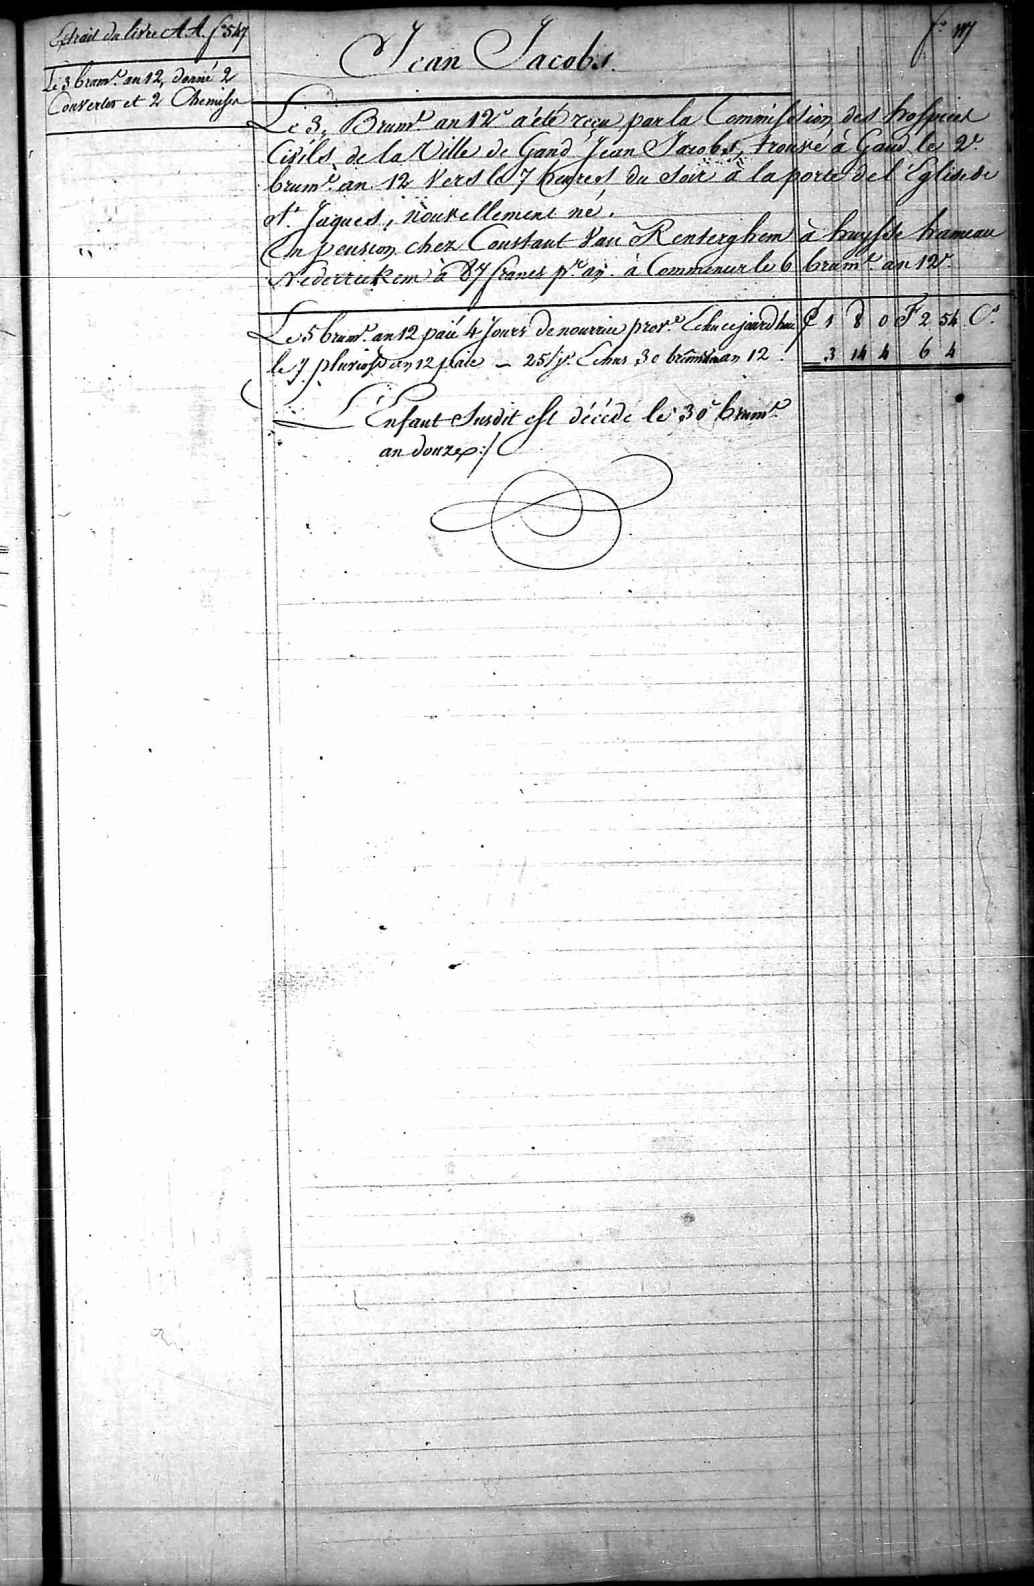 Extrait du livre A.A. fo 547
fo 117
Jean Jacobs.
Le 3 brumre an 12, donné 2
Couvertes et 2 Chemises
Le 3e Brumre an 12e a été reçu par la Commission des hospices
Civils de la Ville de Gand Jean Jacobs, trouvé à Gand le 2e
brumre an 12 vers les 7 heures du Soir à la porte de l'Eglise de
St Jaques, nouvellement né.
En pension chez Constant Van Renterghem à huysse hameau
à 87 francs pr an. à Commencer le 6 brumre an 12e
Le 5 brumre an 12 paié 4 Jours de nourrice Echu ce jourd'hui £ 1 8 0 F 2 54 Cs
le 7 pluviose an 12 paié — 25 Echus 30 brumaire an 12. 3 14 4 6 4
L'Enfant Susdit est décédé le 30e brumre
an douze./.